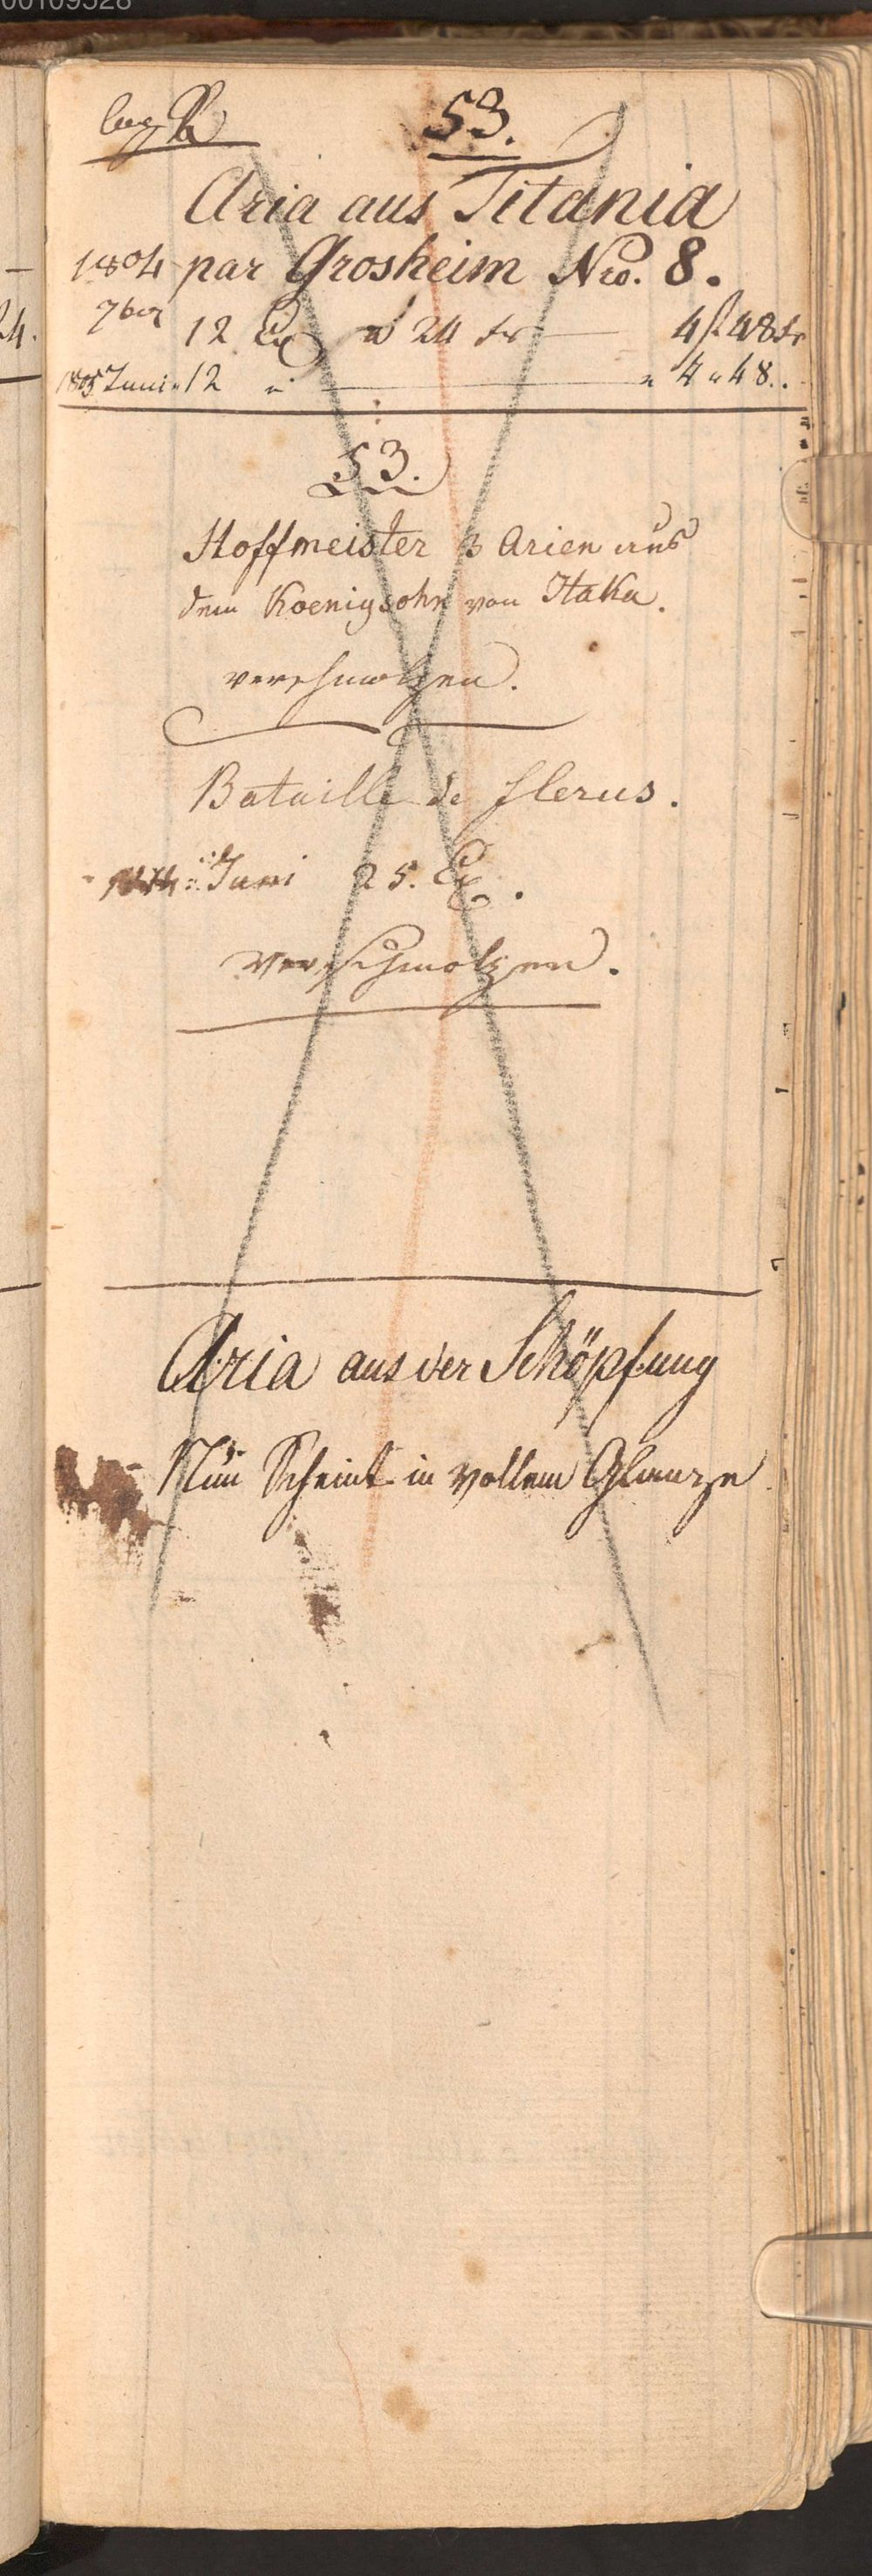 00109528
53.
Aria aus Titania
1804 par Grosheim Nro. 8.
7ber 12 Ex a 24 xr 4 f 48 xr
1805 Juni " 12 " " 4 " 48..
53.
Hoffmeister 3 Arien aus
dem Koenigsohn von Itaka.
verschmolzen.
Bataille de flerus.
Juni 25. Ex.
Verschmolzen.
Aria aus der Schöpfung
Nun Scheint in vollem Glanze